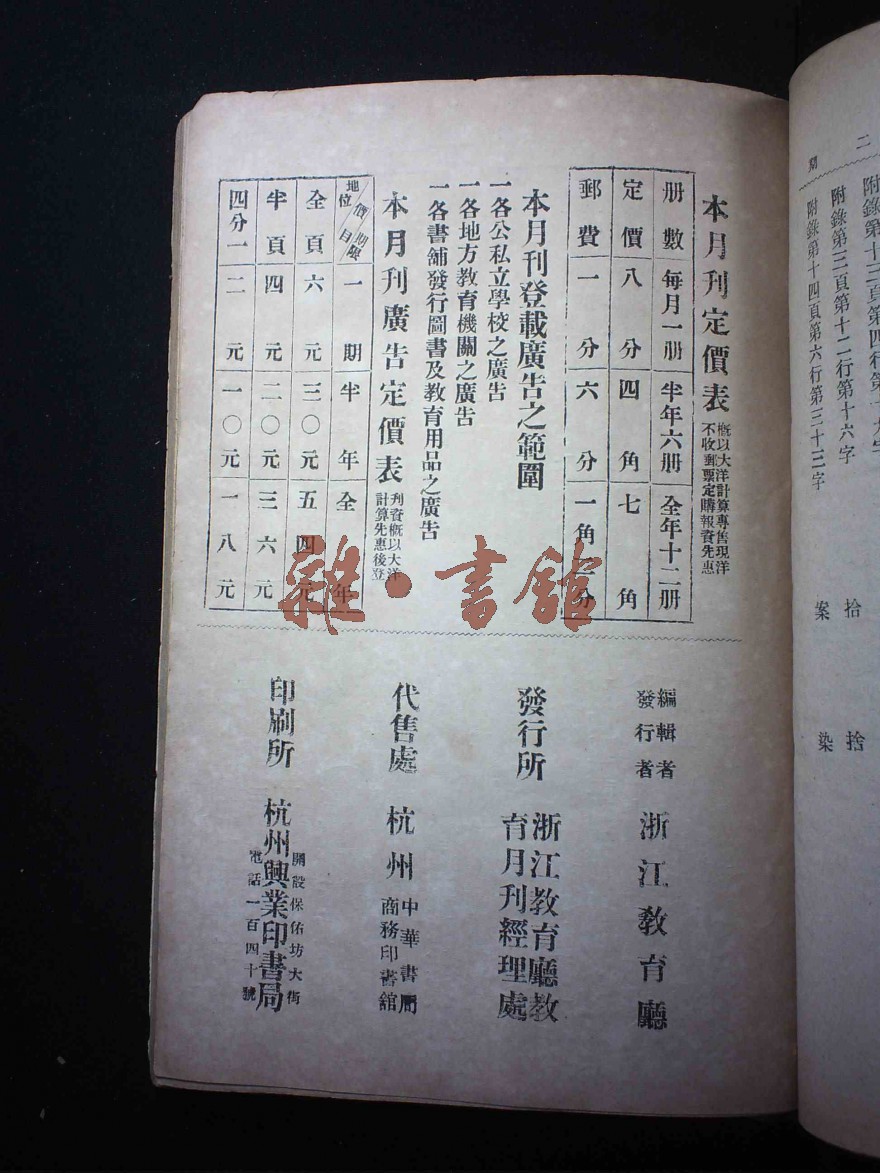 本月刊定價表
概以大洋計算專售現洋
不收郵票定購報資先惠
册數 每月一册 半年六册 全年十二册
定價 八分 四角 七角
郵費 一分 六分 一角二分
本月刊登載廣告之範圍
一各公私立學校之廣告
一各地方教育機關之廣告
一各書舖發行圖書及教育用品之廣告
本月刊廣告定價表
刋資概以大洋
計算先惠後登
地位 價目 期限 一期 半年 全年
全頁 六元 三〇元 五四元
半頁 四元 二〇元 三六元
四分一 二元 一〇元 一八元
編輯者
發行者
浙江教育廳
發行所 浙江教育廳教
育月刊經理處
代售處 杭州 中華書局
商務印書舘
印刷所 杭州興業印書局
開設保佑坊大街
電話一百四十號
雜·書館
附錄第三頁第十二行第十六字
附錄第十四頁第六行第三十三字
拾
案
捨
染